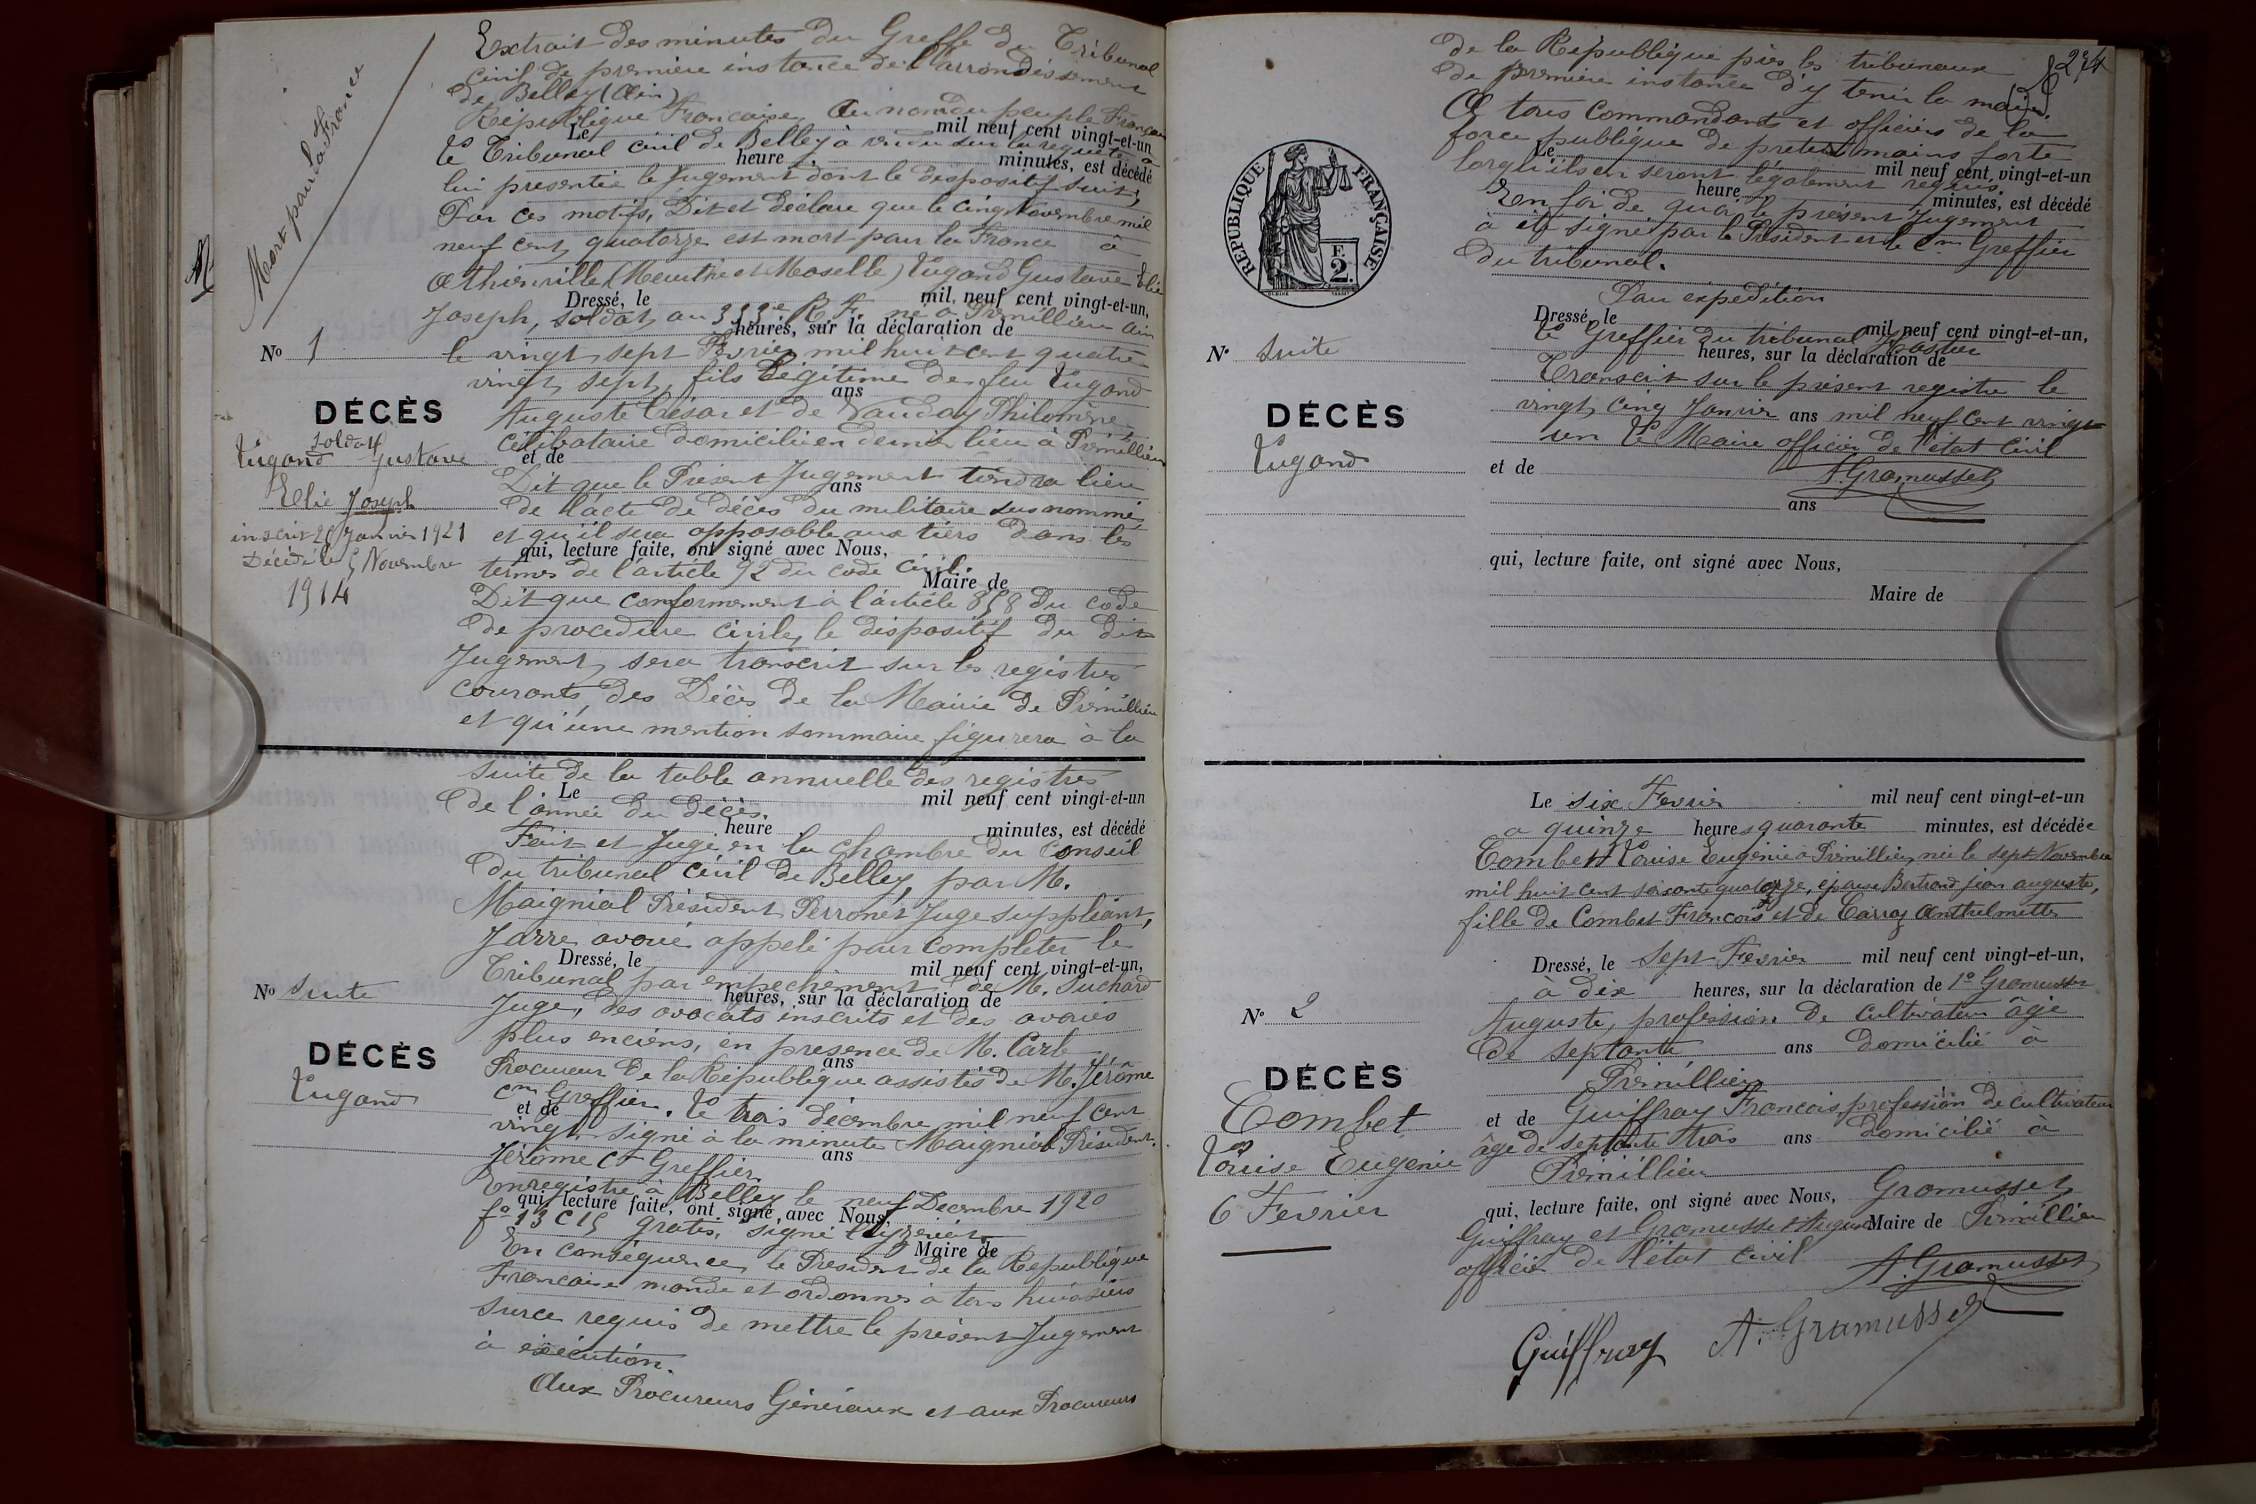 Mort pour la France
Extrait des minutes du Greffe du Tribunal
civil de première instance de l'arrondissement
de Belley (Ain)
République Française, Au nom du peuple Français
Le mil neuf cent vingt-et-un
Le Tribunal civil de Belley à rendu sur la requête à
heure minutes, est décédé
lui presentée le Jugement dont le dispositif suit;
Par ces motifs, Dit et déclare que le cinq Novembre mil
neuf cent quatorze est mort pour la France à
Athienville (Meurthe et Moselle) Tugand Gustave Elie
Dressé, le mil neuf cent vingt-et-un,
Joseph, soldat au 333e R. I. né à Prémillieu Ain
heures, sur la déclaration de
No 1
le vingt sept Fevrier mil huit cent quatre
vingt sept, fils légitime de feu Tugand
ans
DÉCÈS
Auguste César et de Vauday Philomène,
célibataire domicilié en dernier lieu à Prémillieu
soldat
Tugand Gustave
et de
Dit que le Présent Jugement tiendra lieu
ans
Elie Joseph
de l'acte de décès du militaire susnommé
inscrit 25 Janvier 1921
et qu'il sera opposable aux tiers dans les
qui, lecture faite, ont signé avec Nous,
Décédé le 5 Novembre
1914
termes de l'article 92 du code civil.
Maire de
Dit que conformement à l'article 858 du code
de procedure civile, le dispositif du dit
Jugement, sera transcrit sur les registres
courants des Décès de la Mairie de Prémillieu
et qu'une mention sommaire figurera à la
suite de la table annuelle des registres
Le mil neuf cent vingt-et-un
de l'année du décès.
heure minutes, est décédé
Fait et Jugé en la chambre du Conseil
du tribunal civil de Belley, par M.
Maignial Président Perronet Juge suppléant,
Jarre avoué appelé pour completer le
Dressé, le mil neuf cent vingt-et-un,
Tribunal par empechement de M. Suchard
No suite
heures, sur la déclaration de
Juge, des avocats inscrits et des avoués
plus enciens, en presence de M. Carle
DÉCÈS
ans
Procureur de la République assistés de M. Jérôme
Tugand
cm Greffier. Le trois décembre mil neuf cent
et de
vingt, signé à la minute Maignial Président.
ans
Jérôme ct Greffier
Enregistré à Belley le neuf Decembre 1920
qui, lecture faite, ont signé avec Nous,
fo 13 C 15 gratis, signé
Maire de
En conséquence, le President de la République
Francaise mande et ordonnes à tous huissiers
surce requis de mettre le présent Jugement
à éxécution.
Aux Procureurs Généraux et aux Procureurs
234
de la République près les tribunaux
de première instance d'y tenir la main
A tous Commandants et officiers de la
force publique de preter mains forte
Le mil neuf cent vingt-et-un
lorqu'ils en seront légalement requis.
heure minutes, est décédé
En foi de quoi le présent Jugement
à été signé par le Président et le cm Greffier
du tribunal.
RÉPUBLIQUE FRANÇAISE
E
2
Pour expedition
Dressé, le mil neuf cent vingt-et-un,
Le Greffier du tribunal
No suite
heures, sur la déclaration de
Transcrit sur le présent registre le
DÉCÈS
vingt cinq Janvier ans mil neuf cent vingt
un Le Maire officier de l'état civil
Tugand
et de
A. Gramusset
ans
qui, lecture faite, ont signé avec Nous,
Maire de
Le six Fevrier mil neuf cent vingt-et-un
a quinze heures quarante minutes, est décédée
Combet Louise Eugénie à Prémillieu, née le sept Novembre
mil huit cent soixante quatorze, épouse Bertrand jean auguste,
fille de Combet Francois et de Carraz Anthelmette
Dressé, le sept Fevrier mil neuf cent vingt-et-un,
à dix heures, sur la déclaration de 1o Gramusset
No 2
Auguste, profession de cultivateur âgé
de septante ans domicilié à
DÉCÈS
Prémillieu
Combet
et de Guiffray Francois, profession de cultivateur
âgé de septante trois ans domicilié à
Louise Eugenie
Prémillieu
6 Fevrier
qui, lecture faite, ont signé avec Nous, Gramusset
Guiffray et Gramusset Maire de Prémillieu
officier de l'état civil
A. Gramusset
Guiffray A. Gramusset